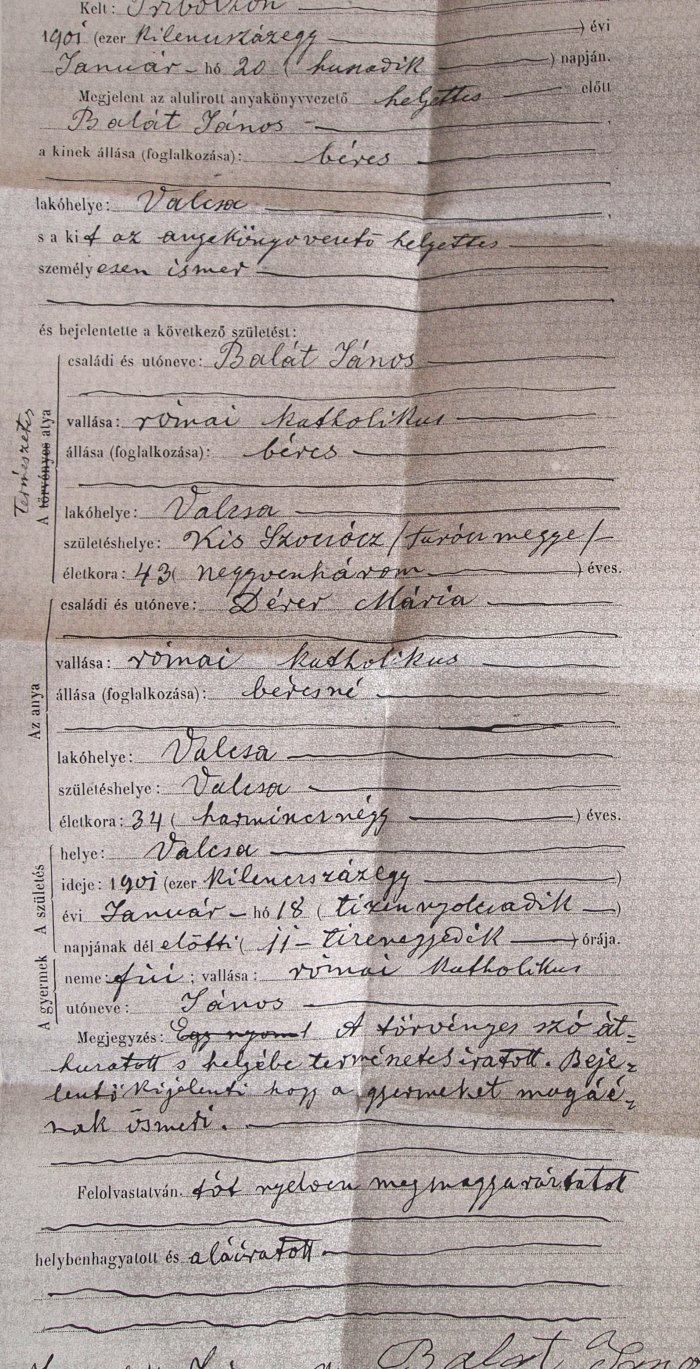 Kelt:
1901 (ezer kilencszázegy ) évi
Január hó 20 ( huszadik ) napján.
Megjelent az alulirott anyakönyvvezető helyettes előtt
Balát János
a kinek állása (foglalkozása): béres
lakóhelye: Valcsa
s a kit az anyekönyvvezető helyettes
személyesen ismer
és bejelentette a következő születést:
Természetes
A törvényes atya
családi és utóneve: Balát János
vallása: római katholikus
állása (foglalkozása): béres
lakóhelye: Valcsa
születéshelye: Kis Szocócz /turócz megye/
életkora: 43 ( neggvenhárom ) éves.
Az anya
családi és utóneve: Dérer Mária
vallása: római katholikus
állása (foglalkozása): béresné
lakóhelye: Valcsa
születéshelye: Valcsa
életkora: 34 ( harmincznégy ) éves.
A születés
helye: Valcsa
ideje: 1901 (ezer kilencszázegy )
évi Január hó 18 ( tizennyolczadik )
napjának dél előtti ( 11 - tizenegyedik ) órája.
A gyermek
neme: fiú ; vallása: római katholikus
utóneve: János
Megjegyzés: Egy nyom A törvényes szó át=
huzatott s helyébe természetes iratott. Beje=
lentő kijelenti hogy a gyermeket magáé=
nak ösmeri.
Felolvastatván, tót nyelven megmagyaráztatott
helybenhagyatott és aláiratott
Balat